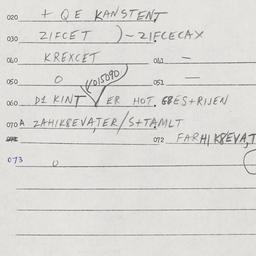 020 + QE KANSTENT
030 ZIFCET )-ZIFCECAX
040 KREXCET 041 -
050 0 051 -
060 D1 KINT V ER HOT, GBES+RIJEN
070A ZAHIKBEVATER/S+TAMLT
072 FARHIKBEVAT
073 0